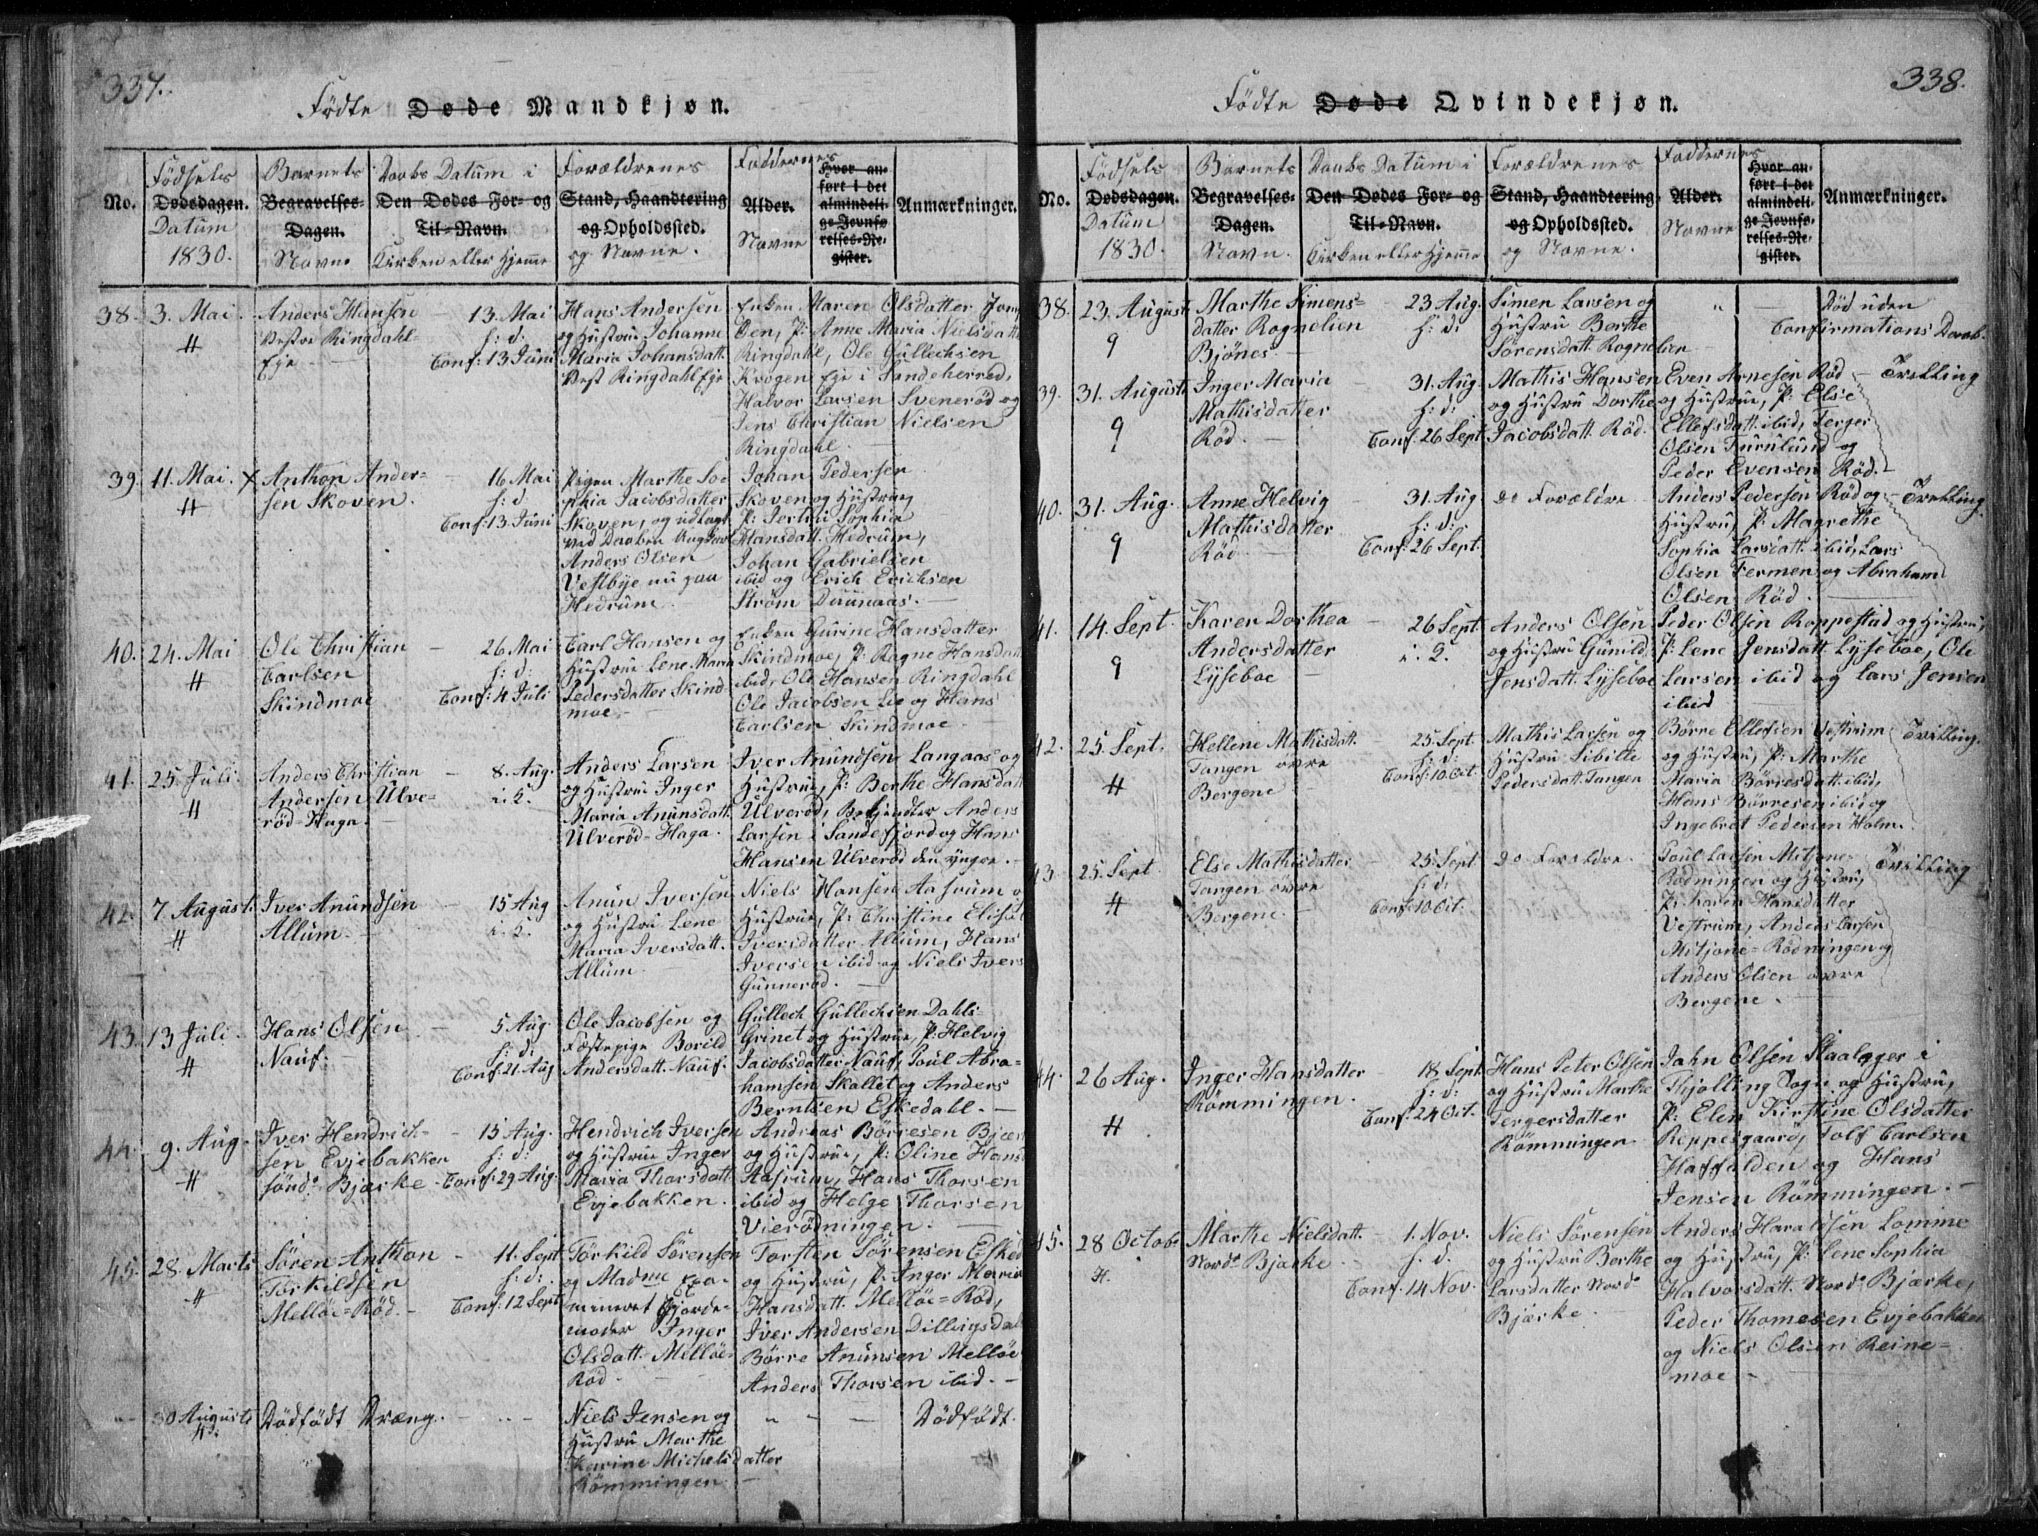 337.
Födte Døde Mandkjøn.
No.
Födsels
Dødsdagen.
Datum
1830.
Barnets
Begravelses-
Dagen.
Navne
Daabs Datum i
Den Dødes For- og
Til-Navn.
Kirken eller hjemme
Forældrenes
Stand, Haandtering
og Opholdssted.
og Navne.
Faddernes
Alder.
Navne
Hvor an-
ført i det
almindeli-
ge Jevnfø-
relses-Re-
gister.
Anmærkninger.
38. 3. Mai.
Anders Hansen
Vestre Ringdahl
Eje
13. Mai
h: d:
Conf: 13 Juni
Hans Andersen
og Hustrue Johanne
Maria Johansdatt.
Vest Ringdahl Eje
Enken Maren Olsdatter
P: Anne Maria Nielsdatt
Ringdahl, Ole Gullechsen
Krogen Eje i Sandeherred,
Halvor Larsen Svenerød og
Jens Christian Nielsen
Ringdahl
39. 11. Mai. x
Anthon Ander-
sen Skoven.
16 Mai
h: d:
Conf: 13 Juni
Pigen Marthe So-
phia Jacobsdatter
Skoven, og udlagt
ved Daaben
Anders Olsen
Vestbye nu paa
Hedrum.
Johan Pedersen
Skoven og Hustrue,
P: Sophia
Hansdatt. Hedrum,
Johan Gabrielsen
ibid og Erich Erichsen
Strøm
40. 24. Mai
Ole Christian
Carlsen
Skindmoe
26 Mai
h: d:
Conf: 4 Juli
Carl Hansen og
Hustrue Lene Maria
Pedersdatter Skind-
moe.
Enken Gurine Hansdatter
Skindmoe, P: Ragne Hansdatt
ibid, Ole Hansen Ringdahl
Ole Jacobsen Lie og Hans
Carlsen Skindmoe
41. 25. Juli.
Anders Christian
Andersen Ulve-
röd-Haga.
8. Aug.
i. K.
Anders Larsen
og Hustrue Inger
Maria Anunsdatt.
Ulveröd-Haga.
Iver Anundsen Langaas og
Hustrue, P: Berthe Hansdatt
Ulveröd, Anders
Larsen i Sandefjord og Hans
Hansen Ulveröd den yngre.
42. 7. August.
Iver Anundsen
Allum
15 Aug
i. K.
Anun Iversen
og Hustru Lene
Maria Iversdatt.
Allum
Niels Hansen Aasrum
Hustrue, P: Christine
Iversdatter Allum, Hans
Iversen ibid og Niels Ivers
Gunneröd.
43. 13 Juli.
Hans Olsen
Nauf.
5 Aug.
h: d:
Conf: 21 Aug
Ole Jacobsen og
Fæstepige Borild
Andersdatt. Nauf.
Gullech Gullechsen Dahls
Grinet og Hustrue, P: Helvig
Jacobsdatter Nauf, Poul Abra-
hamsen Skallet og Anders
Berntsen Eskedahl.
44. 9. Aug.
Iver Hendrich-
sen Evjebakken
sönd. Bjærke
15 Aug.
h: d:
Conf: 29 Aug.
Hendrich Iversen
og Hustrue Inger
Maria Thorsdatt
Evjebakken.
Andreas Börresen
og Hustrue, P: Oline
Aasrum, Hans Thorsen
ibid og Helge Thorsen
Vierödningen.
45. 28. Marts
Sören Anthon
Törkildsen
Melløe=Röd.
11. Sept
h: d:
Conf: 12 Sept
Törkild Sörensen
og Madme Exa-
mineret Gjorde-
moder Inger
Olsdatt. Melløe
Röd.
Torsten Sörensen
og Hustru, P: Inger Maria
Hansdatt. Melløe=Röd,
Iver Andersen
Börre Anunsen Melløe
Anders Thorsen ibid.
30 Augusti
Dödfödt Dræng.
Niels Jensen og
Hustru Marthe
Karine Michelsdatter
Römmingen
Dödfödt.
338.
Födte Døde Qvindekjøn.
No.
Födsels
Dødsdagen.
Datum
1830.
Barnets
Begravelses-
Dagen.
Navn.
Daabs Datum i
Den Dødes For- og
Til-Navn.
Kirken eller hjemme
Forældrenes
Stand, Haandtering
og Opholdssted.
og Navne.
Faddernes
Alder.
Navne
Hvor an-
ført i det
almindeli-
ge Jevnfø-
relses-Re-
gister.
Anmærkninger.
38. 23. August
Marthe Simens-
datter Rognelien
Bjönes.
23 Aug.
h: d:
Simen Larsen og
Hustru Berthe
Sörensdatt. Rognelien
Död uden
Confirmations Daab.
39. 31. August
Inger Maria
Mathisdatter
Röd.
31. Aug
h: d:
Conf: 26 Sept
Mathis Hansen
og Hustru Dorthe
Jacobsdatt. Röd.
Even Arnesen Röd
og Hustrue, P: Else
Ellefsdatt. ibid, Terger
Olsen Furulund og
Peder Evensen Röd.
Trilling
40. 31. Aug.
Anne Helvig
Mathisdatter
Röd
31. Aug
h: d:
Conf: 26 Sept.
do Forældre
Anders Pedersen Röd og
Hustru, P: Magrethe
Sophia Larsdatt. ibid, Lars
Olsen Fermen og Abraham
Olsen Röd.
Trilling
41. 14. Sept.
Karen Dorthea
Andersdatter
Lyseboe
26 Sept.
i. K.
Anders Olsen
og Hustru Gunild
Jensdatt. Lyseboe
Peder Olsen Roppestad og Hustru,
P: Lene Jensdatt Lyseboe, Ole
Larsen ibid og Lars Jensen
ibid
42. 25. Sept.
Hellene Mathisdatt.
Tangen övre
Bergene
25. Sept.
h: d:
Conf: 10. Oct.
Mathis Larsen og
Hustru Sibille
Pedersdatt. Tangen
Börre Ellefsen Vestrum
og Hustru, P: Marthe
Maria Börresdatt. ibid,
Hans Börresen ibid og
Ingebret Pedersen Holm.
Tvilling.
43. 25. Sept
Else Mathisdatter
Tangen övre
Bergene.
25. Sept
h: d:
Conf: 10 Oct.
do Forældre.
Poul Larsen Mitjone-
Rödningen og Hustru,
P: Karen Hansdatter
Vestrum, Anders Larsen
Mitjone-Rödningen og
Anders Olsen övre
Bergene.
Tvilling
44. 26 Aug.
Inger Hansdatter
Römmingen.
18 Sept.
h: d:
Conf: 24 Oct.
Hans Peter Olsen
og Hustru Marthe
Tergersdatter
Römmingen
Jahn Olsen Skaalager i
Thjølling Sogn og Hustru,
P: Elen Kirstine Olsdatter
Reppesgaard, Tolf Carlsen
Haffalden og Hans
Jensen Römmingen.
45. 28 Octob
Marthe Nielsdatt.
Nordr Bjærke
1. Nov.
h. d.
Conf: 14 Nov.
Niels Sörensen
og Hustru Berthe
Larsdatter Nordr
Bjærke.
Anders Haraldsen Lomme
og Hustru, P: Lene Sophia
Halvorsdatt. Nordr Bjærke,
Peder Thomesen Evjebakken
og Niels Olsen Reine-
moe